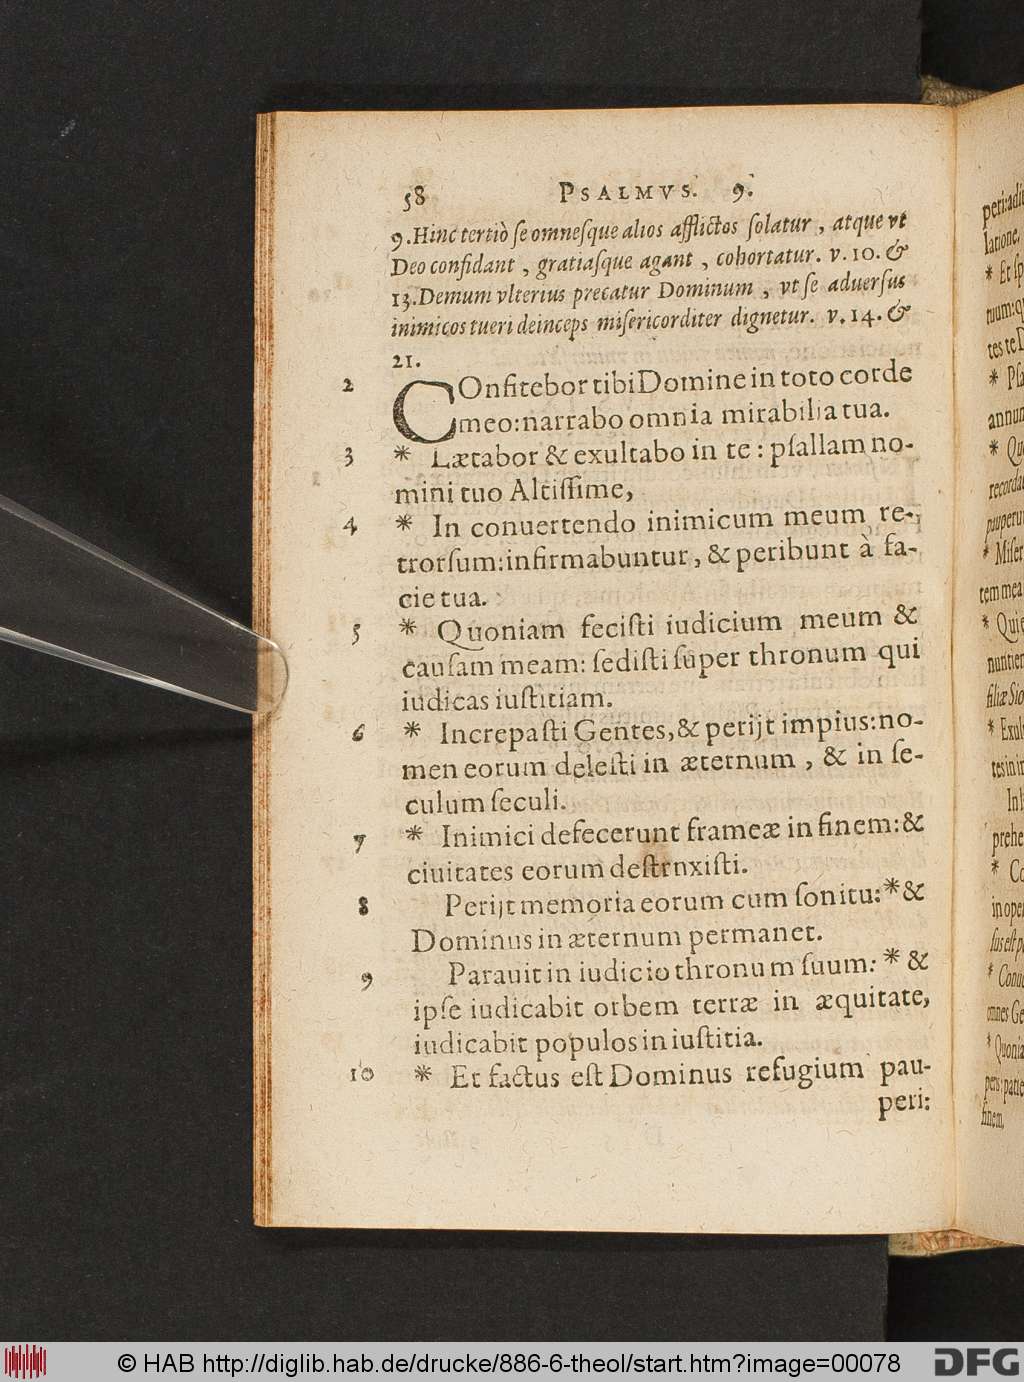 58 PSALMVS. 9.
9. Hinc tertiò se omnesque alios afflictos solatur, atque vt
Deo confidant, gratiasque agant, cohortatur. v. 10. &
13. Demum vlterius precatur Dominum, vt se aduersus
inimicos tueri deinceps misericorditer dignetur. v. 14. &
21.
2 COnfitebor tibi Domine in toto corde
meo: narrabo omnia mirabilia tua.
3 * Lætabor & exultabo in te: psallam no-
mini tuo Altissime,
4 * In conuertendo inimicum meum re-
trorsum: infirmabuntur, & peribunt à fa-
cie tua.
5 * Quoniam fecisti iudicium meum &
causam meam: sedisti super thronum qui
iudicas iustitiam.
6 * Increpasti Gentes, & perijt impius: no-
men eorum delesti in æternum, & in se-
culum seculi.
7 * Inimici defecerunt frameæ in finem: &
ciuitates eorum destrnxisti.
8 Perijt memoria eorum cum sonitu: * &
Dominus in æternum permanet.
9 Parauit in iudicio thronum suum: * &
ipse iudicabit orbem terræ in æquitate,
iudicabit populos in iustitia.
10 * Et factus est Dominus refugium pau-
peri:
peri: adi
latione,
* Et sp
tuum: q
tes te D
* Psa
annun
* Qu
recorda
pauperu
* Miser
tem mea
* Qui e
nuntien
filiæ Sio
* Exul
tes in in
prehe
* Co
in ope
sus est p
* Conue
omnes Ge
* Quonia
peris: patie
finem,
© HAB http://diglib.hab.de/drucke/886-6-theol/start.htm?image=00078
DFG